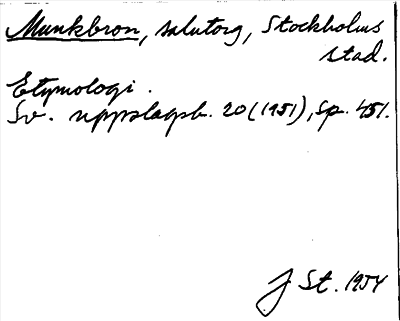 Munkbron, salutorg, Stockholms
stad.
Etymologi.
Sv. uppslagsb. 20 (1951), sp. 451.
J St. 1954